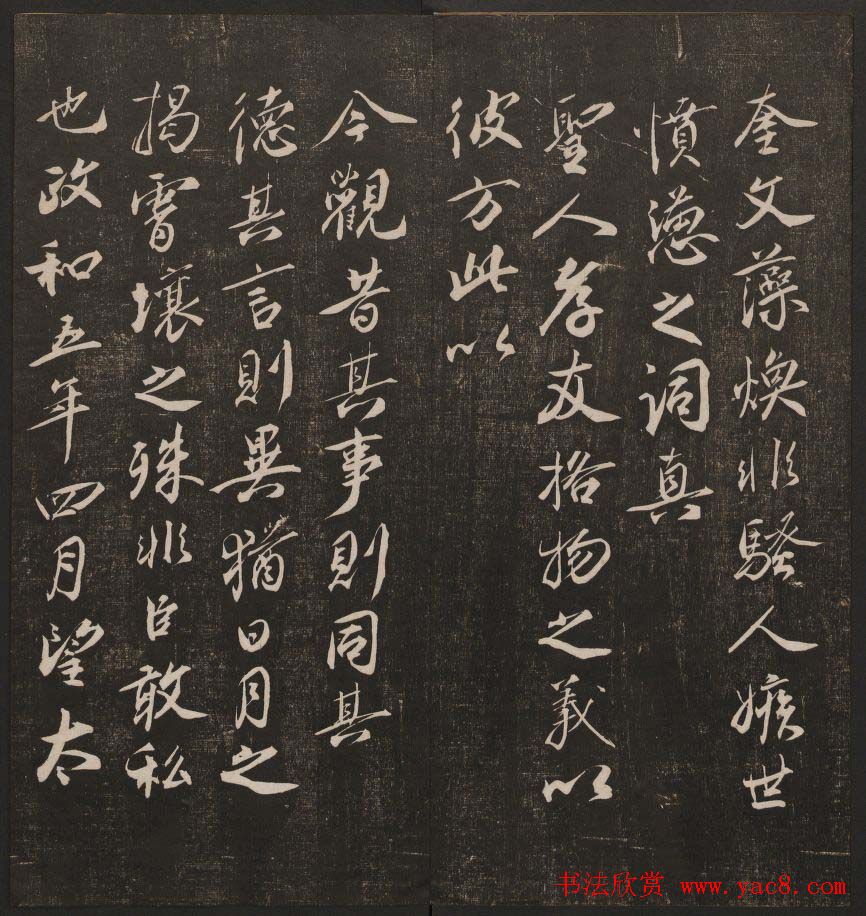 奎文藻煥非騷人嫉世
憤懣之詞真
聖人孝友格物之義以
彼方此以
今觀昔其事則同其
德其言則異猶日月之
揭霄壤之殊非臣敢私
也政和五年四月望太
书法欣赏 www.yac8.com